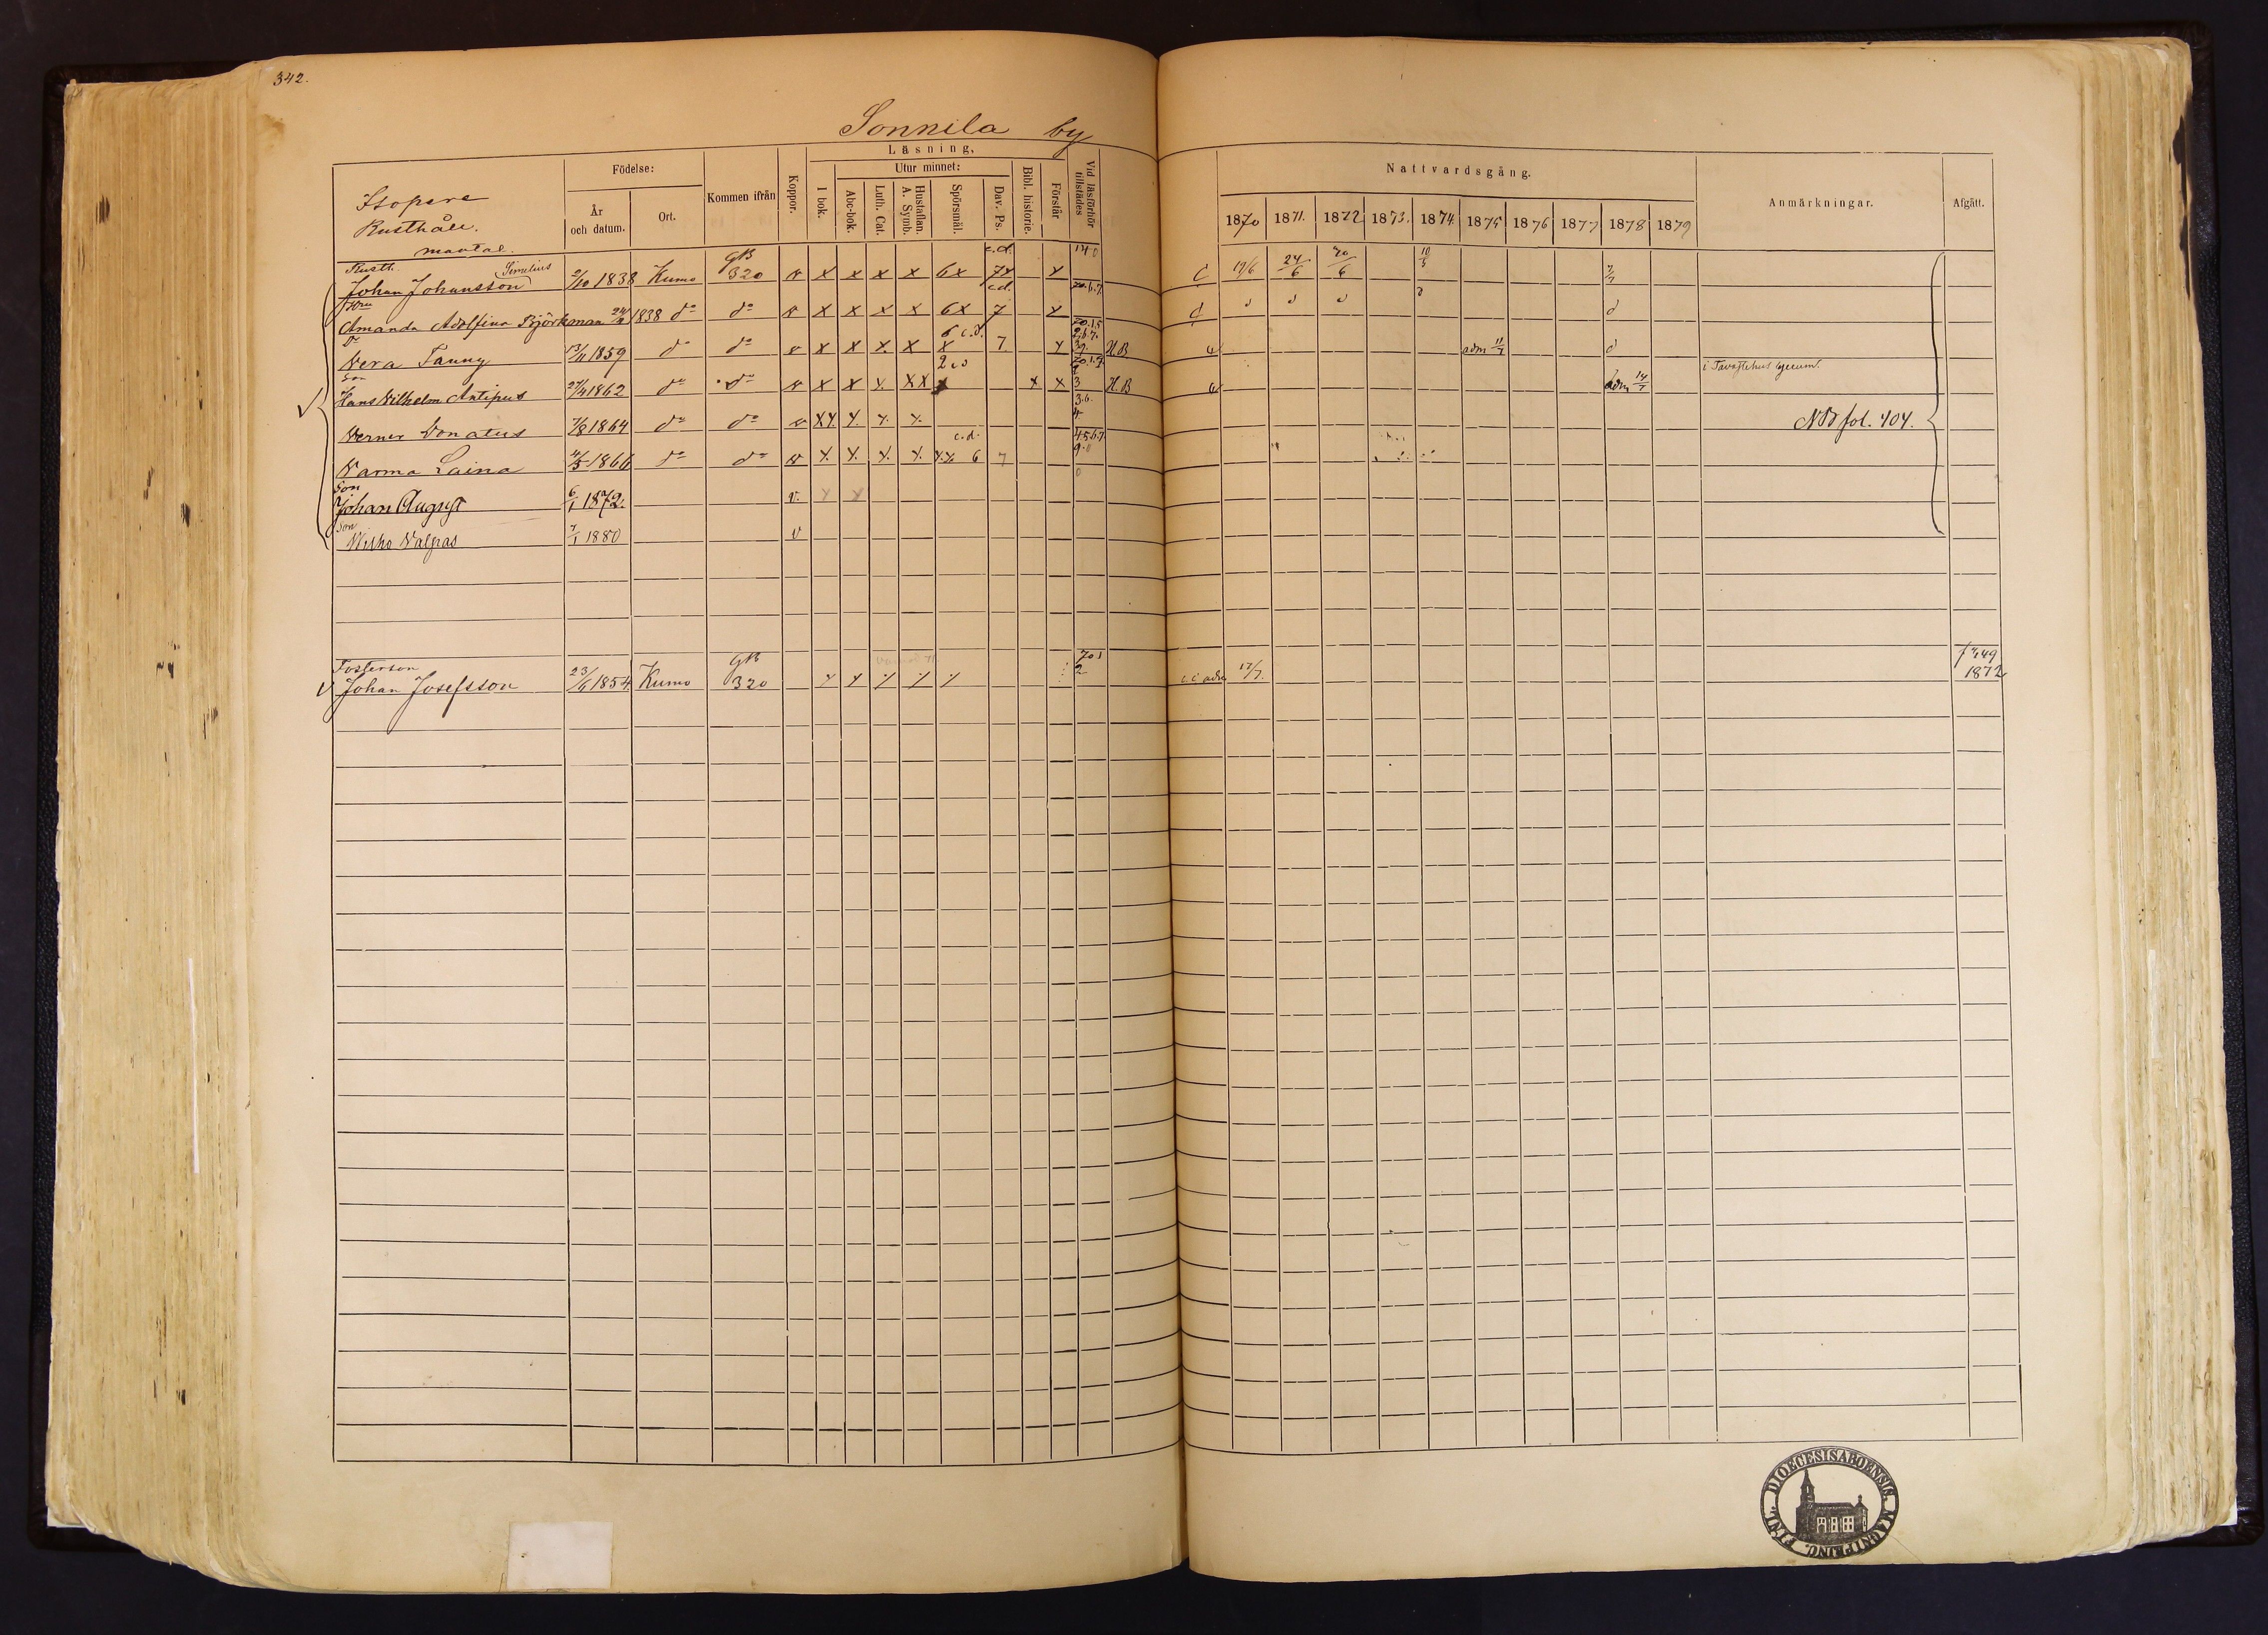 342.
Sonnila by
Isopere
Rusthåll.
mantal.
Födelse:
År
och datum.
Ort.
Kommen ifrån
Koppor.
Läsning,
I bok.
Utur minnet:
Abc-bok.
Luth. Cat.
Hustaflan.
A. Symb.
Spörsmål.
Dav. Ps.
Bibl. historie.
Förstår
Vid läsförhör
tillstädes
Nattvardsgång.
1870 1871. 1872 1873. 1874. 1875 1876 1877 1878 1879
Anmärkningar.
Afgått.
Rusth. Simelius
Johan Johansson 2/10 1838 Kumo GB 320 v x x x x 6x c.d. 7x x C 19/6 24/6 20/6
Hru
Amanda Adolfina Björkman 1838 do do v x x x x 6x c.d. 7 x
Dr
Vera Fanny 13/11 1859 do do v x x x x 6 c.d. x 7. x H.B adm 11/7
Son
Hans Wilhelm Antipus 27/4 1862 do do v x x x xx x x 3 H.B adm 14/7 i Tavastehus lyceum.
Verner Donatus 7/8 1864 do do v xx x x x NB fol. 404.
Varma Laina 1866 do do v x x x x c.d. 6 7
Son
Johan August 6/1 1872. v. x x
Son
Weikko Valpas 7/1 1880 v
Fosterson
Johan Josefsson 23/4 1854. Kumo GB 320 x x x x x 2 adm 17/7. 49 1872
DIOECESIS ABOENSIS. MAGNI PRINC. FINL.